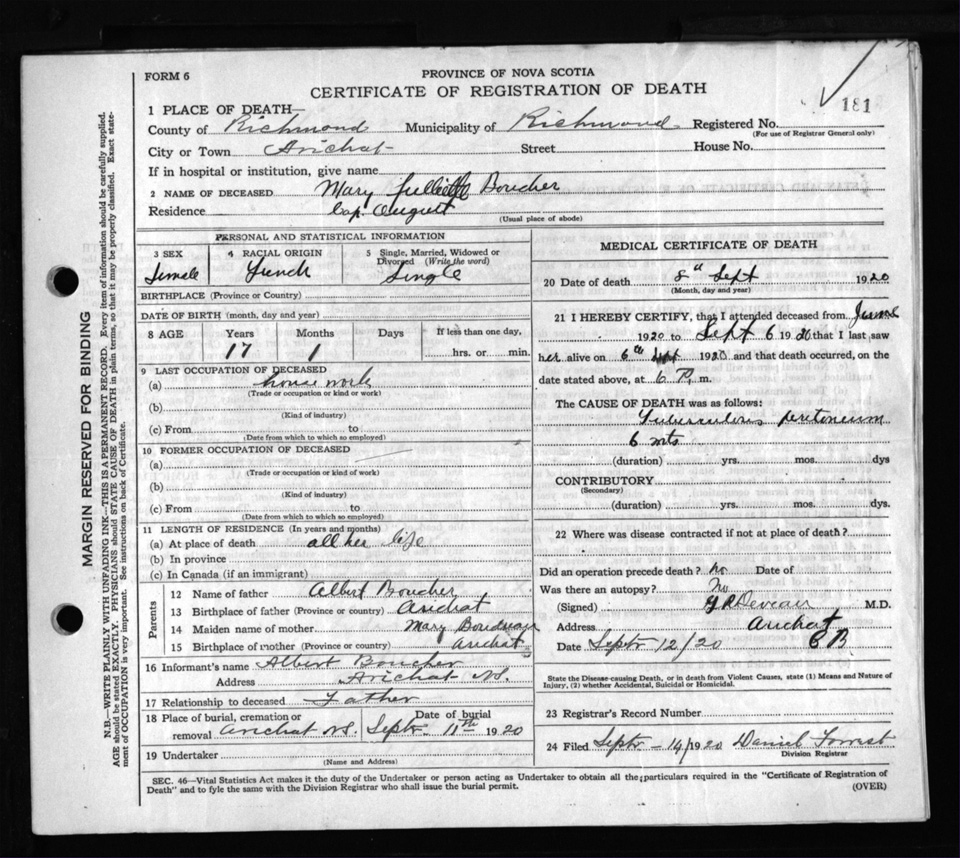 FORM 6
PROVINCE OF NOVA SCOTIA
CERTIFICATE OF REGISTRATION OF DEATH
181
1 PLACE OF DEATH—
County of Richmond Municipality of Richmond Registered No.
(For use of Registrar General only)
City or Town Arichat Street House No.
If in hospital or institution, give name
2 NAME OF DECEASED Mary Julliette Boucher
Residence Cap August
(Usual place of abode)
PERSONAL AND STATISTICAL INFORMATION
3 SEX 4 RACIAL ORIGIN 5 Single, Married, Widowed or Divorced (Write the word)
Female French Single
BIRTHPLACE (Province or Country)
DATE OF BIRTH (month, day and year)
8 AGE Years Months Days If less than one day,
17 1 hrs. or min.
9 LAST OCCUPATION OF DECEASED
(a) house work
(Trade or occupation or kind or work)
(b)
(Kind of industry)
(c) From to
(Date from which to which so employed)
10 FORMER OCCUPATION OF DECEASED
(a)
(Trade or occupation or kind of work)
(b)
(Kind of industry)
(c) From to
(Date from which to which so employed)
11 LENGTH OF RESIDENCE (In years and months)
(a) At place of death all her life
(b) In province
(c) In Canada (if an immigrant)
Parents
12 Name of father Albert Boucher
13 Birthplace of father (Province or country) Arichat
14 Maiden name of mother Mary Boudreau
15 Birthplace of mother (Province or country) Arichat
16 Informant's name Albert Boucher
Address Arichat N.S.
17 Relationship to deceased Father
18 Place of burial, cremation or removal Arichat N.S. Date of burial Septr 11th 1920
19 Undertaker
(Name and Address)
MEDICAL CERTIFICATE OF DEATH
20 Date of death 8th Sept 1920
(Month, day and year)
21 I HEREBY CERTIFY, that I attended deceased from June
1920 to Sept 6 1920 that I last saw
her alive on 6th Sept 1920 and that death occurred, on the
date stated above, at 6 P. m.
The CAUSE OF DEATH was as follows:
Tuberculous peritoneum
6 mts
(duration) yrs. mos. dys
CONTRIBUTORY
(Secondary)
(duration) yrs. mos. dys.
22 Where was disease contracted if not at place of death?
Did an operation precede death? no Date of
Was there an autopsy? No
(Signed) Deveau M.D.
Address Arichat
Date Septr 12/20 CB
State the Disease-causing Death, or in death from Violent Causes, state (1) Means and Nature of
Injury, (2) whether Accidental, Suicidal or Homicidal.
23 Registrar's Record Number
24 Filed Septr 14/1920 Daniel Forrest
Division Registrar
SEC. 46—Vital Statistics Act makes it the duty of the Undertaker or person acting as Undertaker to obtain all the particulars required in the "Certificate of Registration of
Death" and to fyle the same with the Division Registrar who shall issue the burial permit.
(OVER)
MARGIN RESERVED FOR BINDING
N.B.—WRITE PLAINLY WITH UNFADING INK—THIS IS A PERMANENT RECORD. Every item of information should be carefully supplied.
AGE should be stated EXACTLY. PHYSICIANS should STATE CAUSE OF DEATH in plain terms, so that it may be properly classified. Exact state-
ment of OCCUPATION is very important. See instructions on back of Certificate.